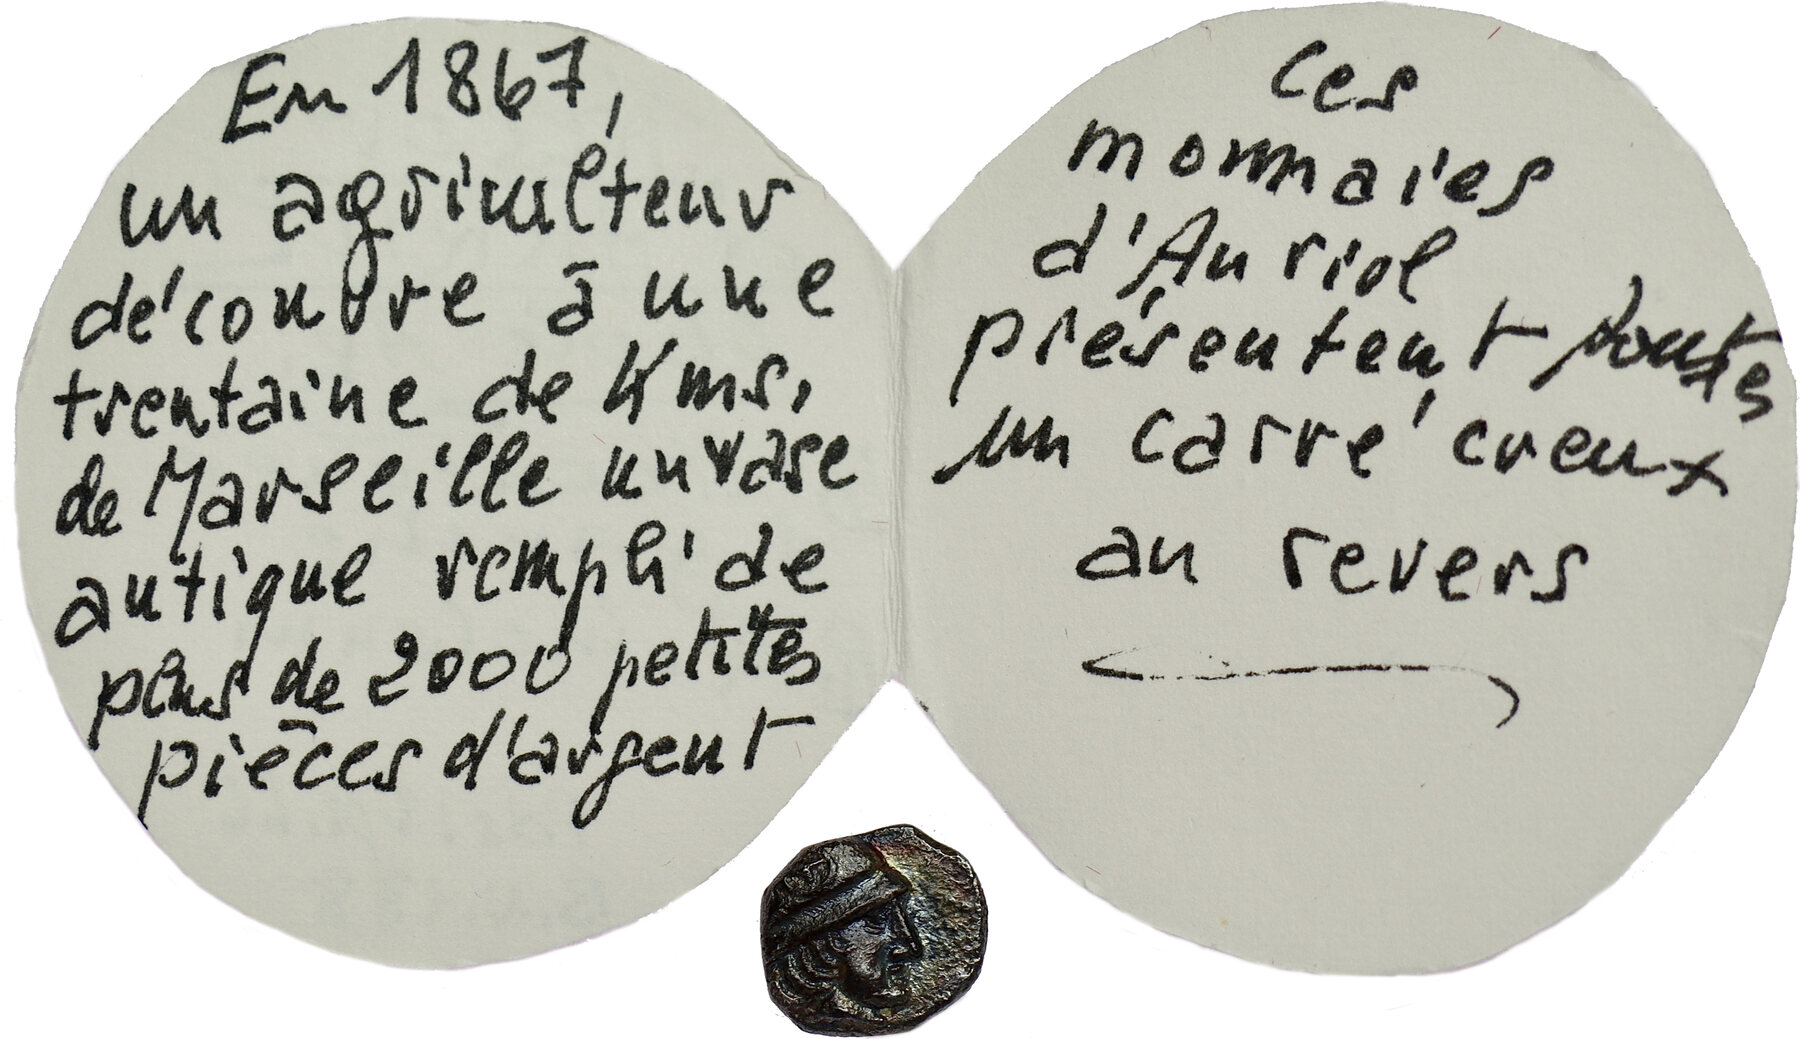 En 1867,
un agriculteur
découvre à une
trentaine de Kms,
de Marseille un vase
antique rempli de
plus de 2000 petites
pièces d'argent
Ces
monnaies
d'Auriol
présentent toutes
un carré creux
au revers